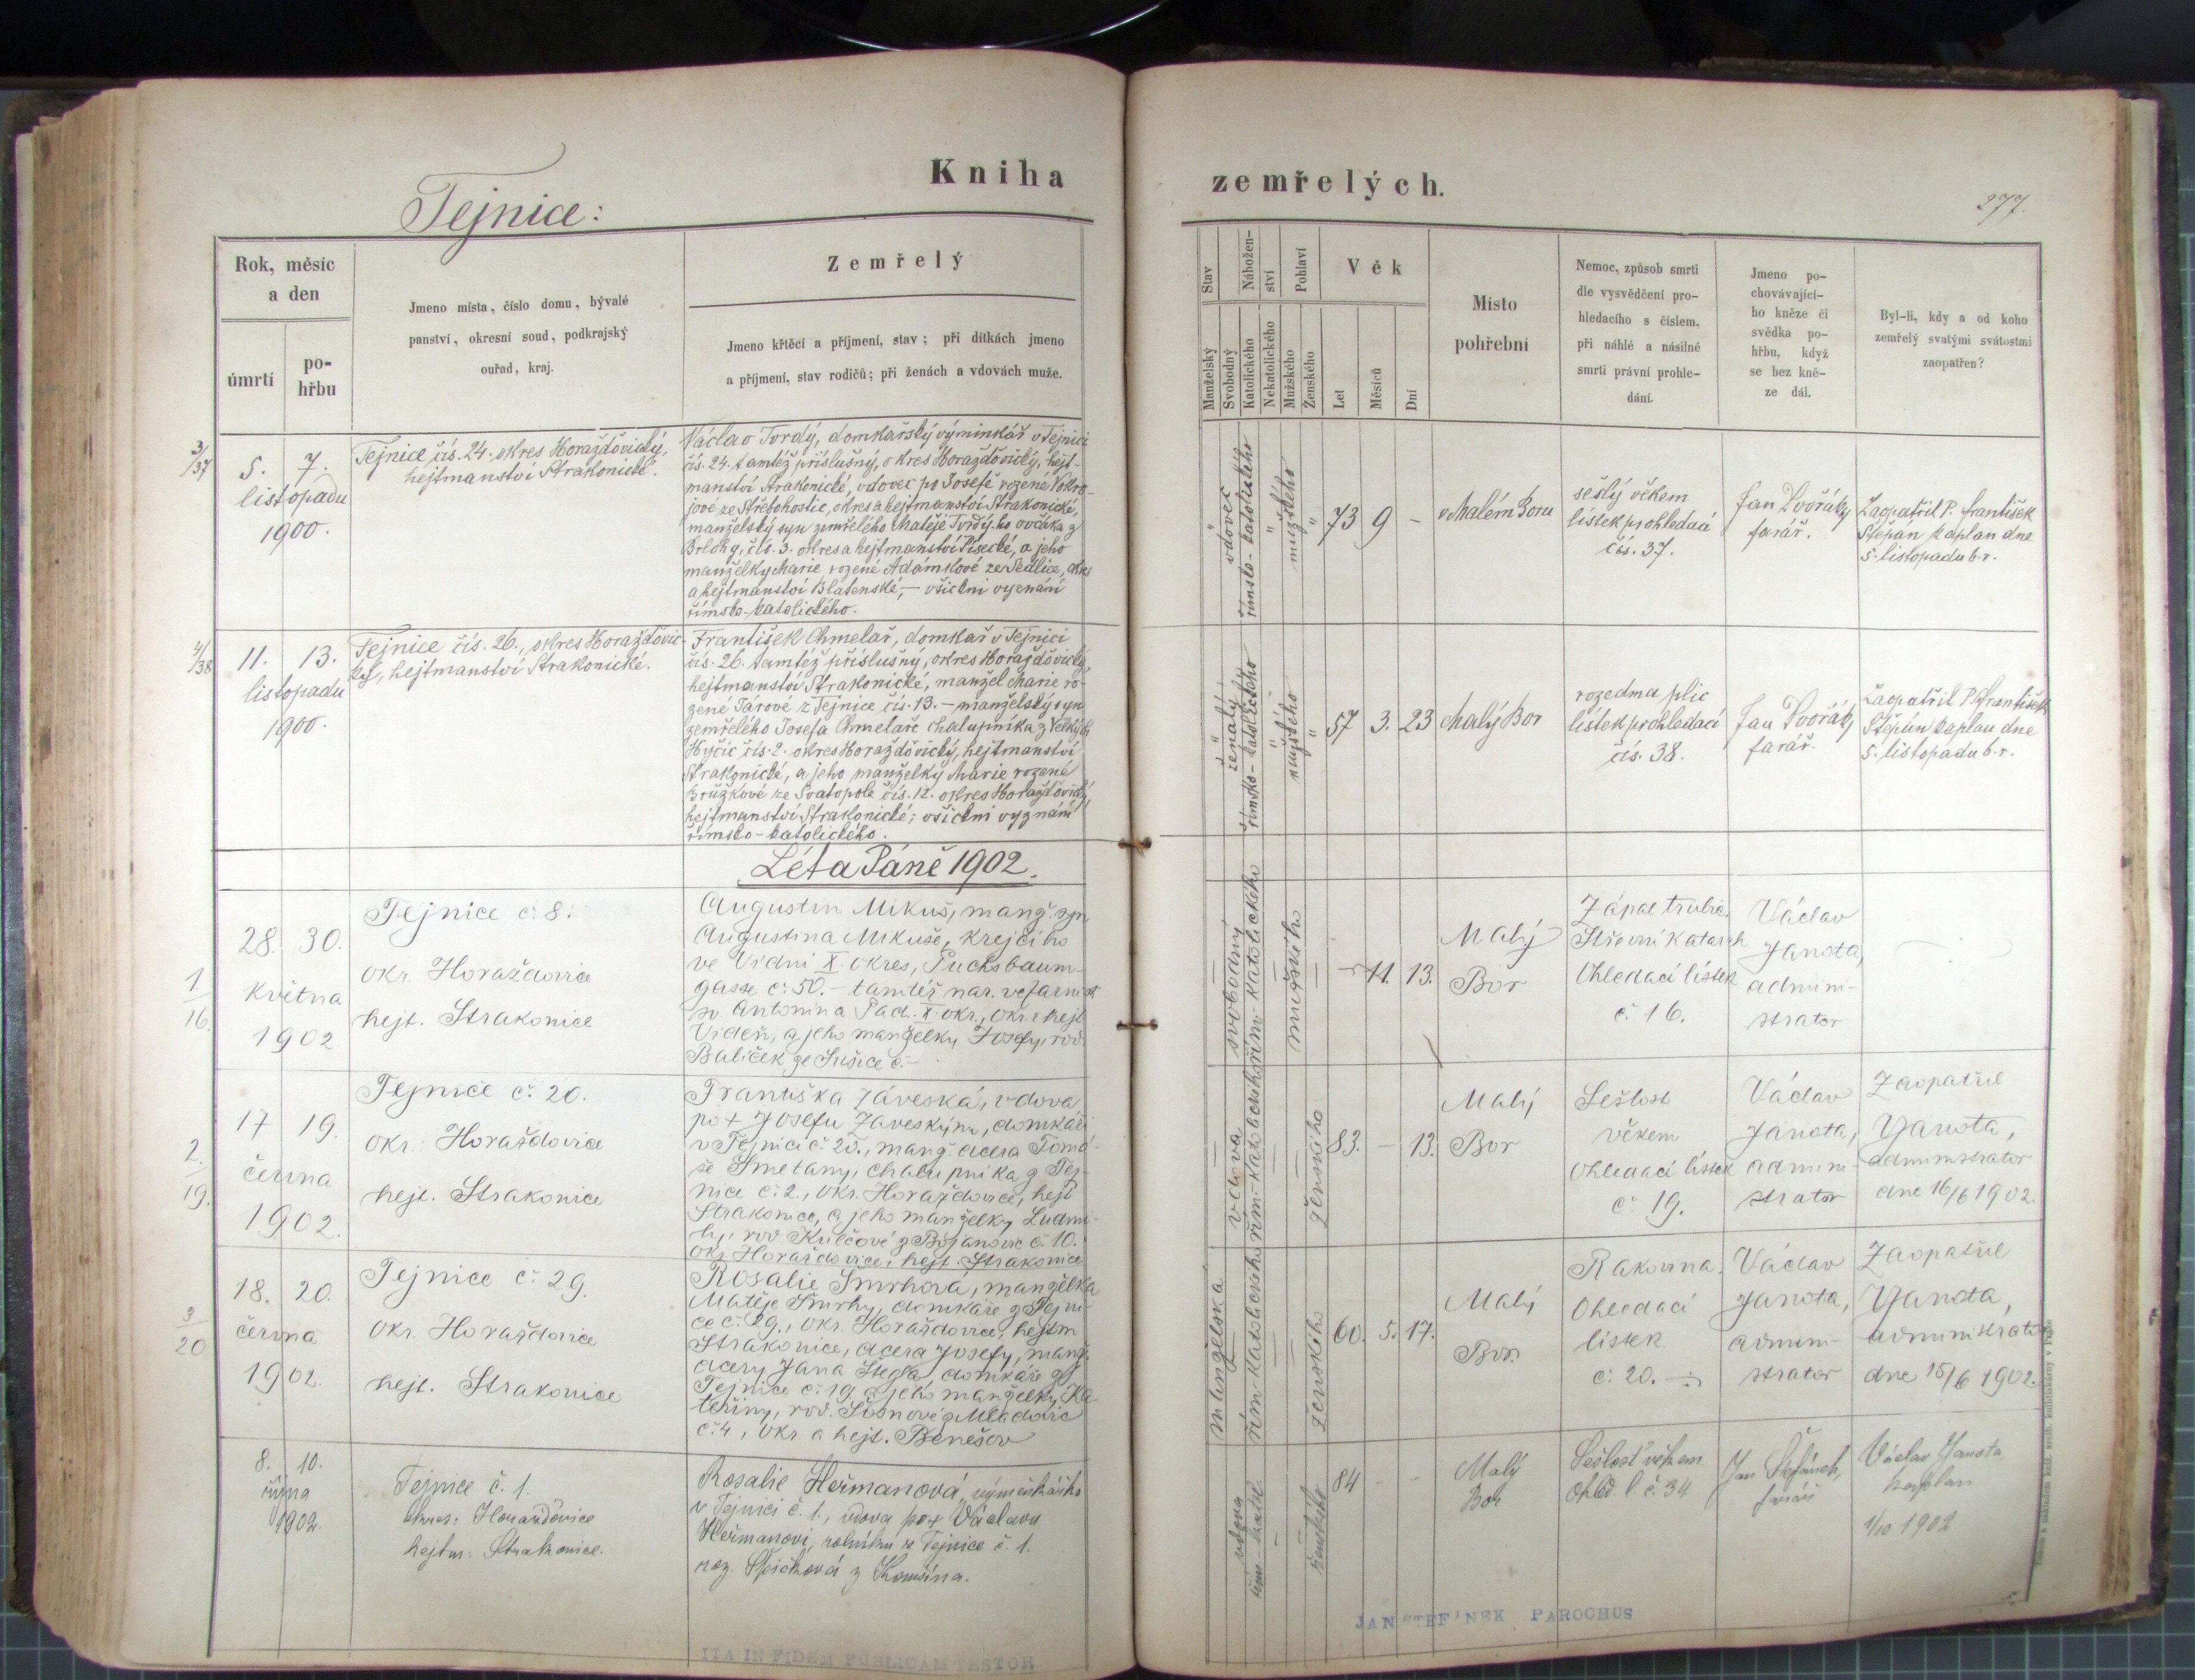 Kniha
zemřelých.
Tejnice:
277.
Rok, měsíc
a den
úmrtí
po-
hřbu
Jmeno místa, číslo domu, bývalé
panství, okresní soud, podkrajský
ouřad, kraj.
Zemřelý
Jmeno křtěcí a příjmení, stav; při dítkách jmeno
a příjmení, stav rodičů; při ženách a vdovách muže.
Stav
Manželský
Svobodný
Nábožen-
ství
Katolického
Nekatolického
Pohlaví
Mužského
Ženského
Věk
Let
Měsíců
Dní
Místo
pohřební
Nemoc, způsob smrti
dle vysvědčení pro-
hledacího s číslem,
při náhlé a násilné
smrti právní prohle-
dání.
Jmeno po-
chovávající-
ho kněze či
svědka po-
hřbu, když
se bez kně-
ze dál.
Byl-li, kdy a od koho
zemřelý svatými svátostmi
zaopatřen?
3/37
5. 7.
listopadu
1900.
Tejnice čís. 24. okres Horažďovický,
hejtmanství Strakonické.
Václav Tvrdý, domkářský výminkář v Tejnici
čís. 24. tamtéž příslušný, okres Horažďovický, hejt-
manství Strakonické, vdovec po Josefě rozené Vokro-
jové ze Střebohostic, okres a hejtmanství Strakonické,
manželský syn zemřelého Matěje Tvrdýho ovčáka z
Brlohy, čís. 3. okres a hejtmanství Písecké, a jeho
manželky Marie rozené Adamkové ze Sedlice, okres
a hejtmanství Blatenské, – všickni vyznání
římsko-katolického.
vdovec
římsko-katolického
mužského
73 9 –
v Malém Boru
sešlý věkem
lístek prohledací
čís. 37.
Jan Dvořák
farář.
Zaopatřil P. František
Štěpán kaplan dne
5. listopadu b. r.
4/38
11. 13.
listopadu
1900.
Tejnice čís. 26., okres Horažďovic-
ký, hejtmanství Strakonické.
František Chmelař, domkař v Tejnici
čís. 26. tamtéž příslušný, okres Horažďovický,
hejtmanství Strakonické, manžel Marie ro-
zené Tárové z Tejnice čís. 13. – manželský syn
zemřelého Josefa Chmelaře chalupníka z Velkých
Hyčic čís. 2. okres Horažďovický, hejtmanství
Strakonické, a jeho manželky Marie rozené
Brůžkové ze Svatopole čís. 12. okres Horažďovický,
hejtmanství Strakonické; všickni vyznání
římsko-katolického.
ženatý
římsko-katolického
mužského
57 3. 23
Malý Bor
rozedma plic
lístek prohledací
čís. 38.
Jan Dvořák
farář.
Zaopatřil P. František
Štěpán kaplan dne
5. listopadu b. r.
Léta Páně 1902.
1/16.
28. 30.
května
1902.
Tejnice č. 8.
okr. Horažďovice
hejt. Strakonice
Augustin Mikuš, manž. syn
Augustina Mikuše, krejčího
ve Vídni X. okres, Puchsbaum-
gasse č. 50. – tamtéž nar. ve farnosti
sv. Antonína Pad. X. okr., okr. i hejt
Vídeň, a jeho manželky Josefy, roz.
Bulíček ze Sušice č. –
svobodný
řím. katolického
mužského
– 11. 13.
Malý
Bor
Zápal trubic,
Střevní katarrh
Ohledací lístek
č. 16.
Václav
Janota,
admini-
strator
2./19.
17 19.
června
1902.
Tejnice č. 20.
okr. Horažďovice
hejt. Strakonice
Františka Záveská, vdova
po + Josefu Záveským, domkáři
v Tejnici č. 20., manž. dcera Tomá-
še Smetany, chalupníka z Tej-
nice č. 2., okr. Horažďovice, hejt
Strakonice, a jeho manželky Ludmi-
ly, roz Kulčové z Bojanovic č. 10.
okr Horažďovice, hejt. Strakonice
vdova
řím. katolického
ženského
83. – 13.
Malý
Bor
Sešlost
věkem
Ohledací lístek
č. 19.
Václav
Janota,
admini-
strator
Zaopatřil
Janota,
administrator
dne 16/6 1902.
3/20
18. 20.
června
1902.
Tejnice č. 29.
okr. Horažďovice
hejt. Strakonice
Rosalie Šmrhová, manželka
Matěje Šmrhy, domkáře z Tejni-
ce č. 29., okr. Horažďovice, hejtm
Strakonice, dcera Josefy, manž.
dcery Jana Šlegla, domkáře z
Tejnice č. 19. a jeho manželky Ka-
teřiny, roz. z Mladovic
č. 4, okr. a hejt. Benešov
manželská
řím. katolického
ženského
60. 5. 17.
Malý
Bor.
Rakovina.
Ohledací
lístek
č. 20. –
Václav
Janota,
admini-
strator
Zaopatřil
Janota,
administrator
dne 15/6 1902.
8. 10.
října
1902
Tejnice č. 1.
okres: Horažďovice
hejtm: Strakonice.
Rosalie Heřmanová, výměnkářka
v Tejnici č. 1., vdova po + Václavu
Heřmanovi, rolníku z Tejnice č. 1.
roz. Špičková z Komšína.
vdova
řím. katol.
ženského
84 – –
Malý
Bor
Sešlost věkem
Ohled. l. č. 34
Jan Štefánek,
farář
Václav Janota,
kaplan
1/10 1902
ITA IN FIDEM PUBLICAM TESTOR
JAN STEFÁNEK PAROCHUS